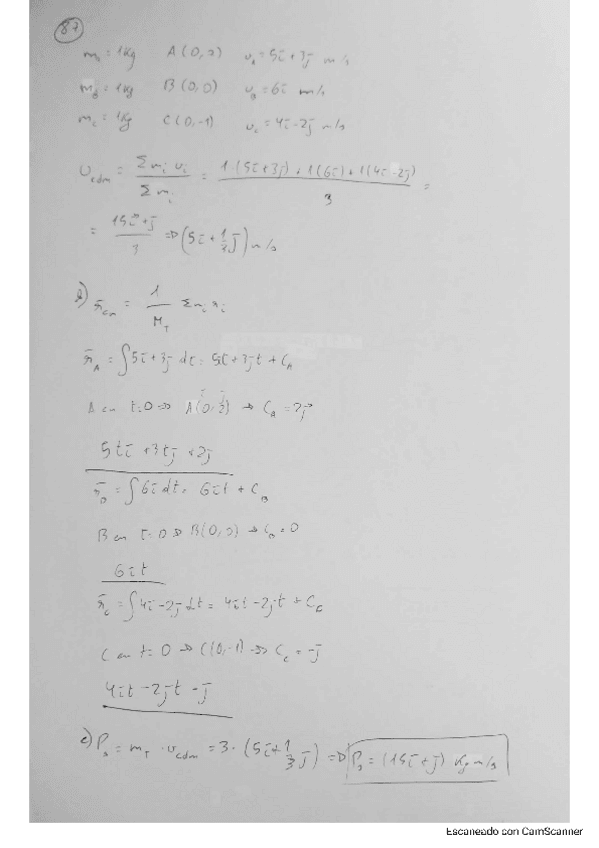 87
m_A = 1Kg A(0,2) v_A = 5i+3j m/s
m_B = 1Kg B(0,0) v_B = 6i m/s
m_C = 1Kg C(0,-1) v_C = 4i-2j m/s
v_cdm = Σ m_i v_i / Σ m_i = 1·(5i+3j) + 1(6i) + 1(4i-2j) / 3 =
= 15i+j / 3 => (5i + 1/3 j) m/s
b) r_cm = 1/M_T Σ m_i r_i
r_A = ∫ 5i+3j dt = 5it + 3jt + C_A
A en t=0 => A(0,2) => C_A = 2j
5ti + 3tj + 2j
r_B = ∫ 6i dt = 6it + C_B
B en t=0 => B(0,0) => C_B = 0
6it
r_C = ∫ 4i-2j dt = 4it - 2jt + C_C
C en t=0 => C(0,-1) => C_C = -j
4it - 2jt - j
c) P_s = m_T · v_cdm = 3 · (5i + 1/3 j) => P_s = (15i+j) Kg m/s
Escaneado con CamScanner